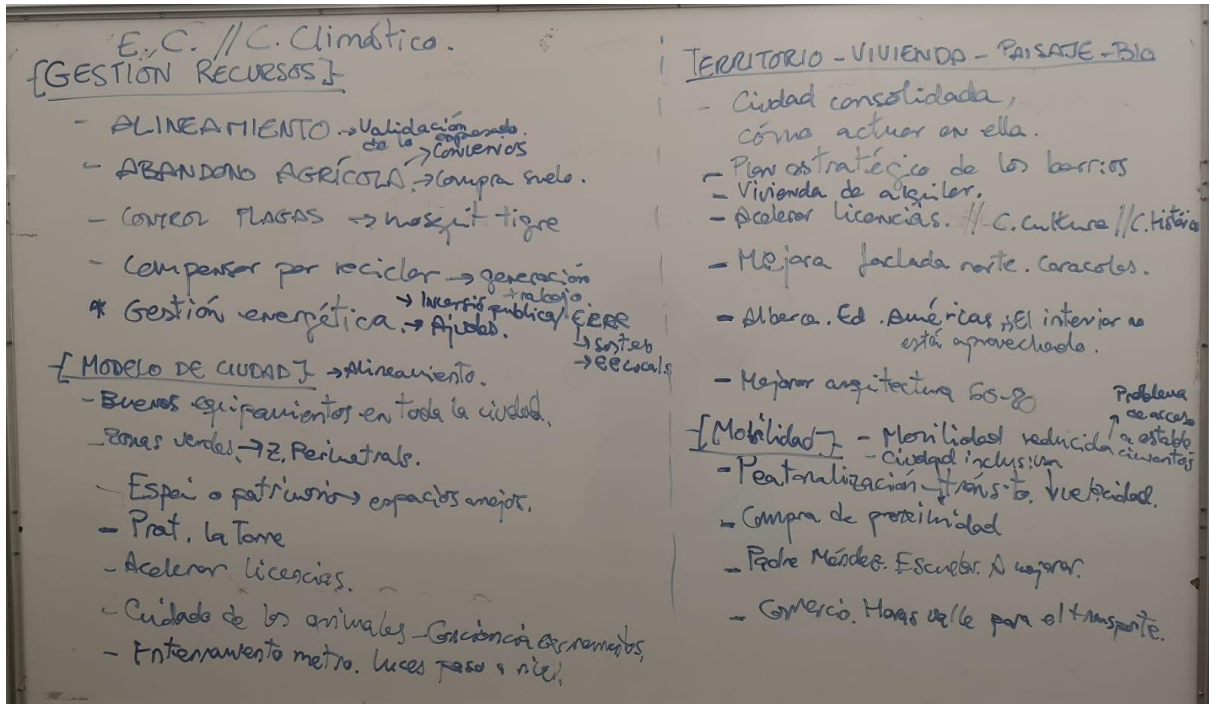 E.C. // C. Climático.
{GESTIÓN RECURSOS}
- ALINEAMIENTO → Validación de lo expresado.
- ABANDONO AGRÍCOLA. → Convenios
→ Compra suelo.
- CONTROL PLAGAS → mosquit tigre
- Compensar por reciclar → generación trabajo.
* Gestión energética. → Inversió pública / EERR
→ Ajudes.
→ sosten
→ EE locals
{MODELO DE CIUDAD} → Alineamiento.
- Buenos equipamientos en toda la ciudad.
- Zonas verdes. → Z. Perimetrals.
- Espai o patrimonio → espacios anejos.
- Prat. La Torre
- Acelerar licencias.
- Cuidado de los animales - Conciencia excrementos.
- Enterramiento metro. Luces paso a nivel.
TERRITORIO - VIVIENDA - PAISAJE - BIO
- Ciudad consolidada,
cómo actuar en ella.
- Plan estratégico de los barrios
- Vivienda de alquiler.
- Acelerar licencias. // C. Cultura // C. Histórico
- Mejora fachada norte. Caracoles.
- Alberca. Ed. Américas → El interior no
está aprovechado.
- Mejorar arquitectura 60-80
{Mobilidad.} - Movilidad reducida → Problema de acceso a establecimientos
- Ciudad inclusiva
- Peatonalización - tránsito. ↓ velocidad.
- Compra de proximidad
- Padre Méndez. Escuelas. A mejorar.
- Comercio. Horas valle para el transporte.